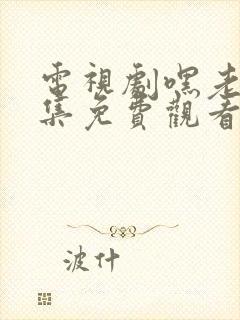 電視劇嘿老
集免費觀看
波什